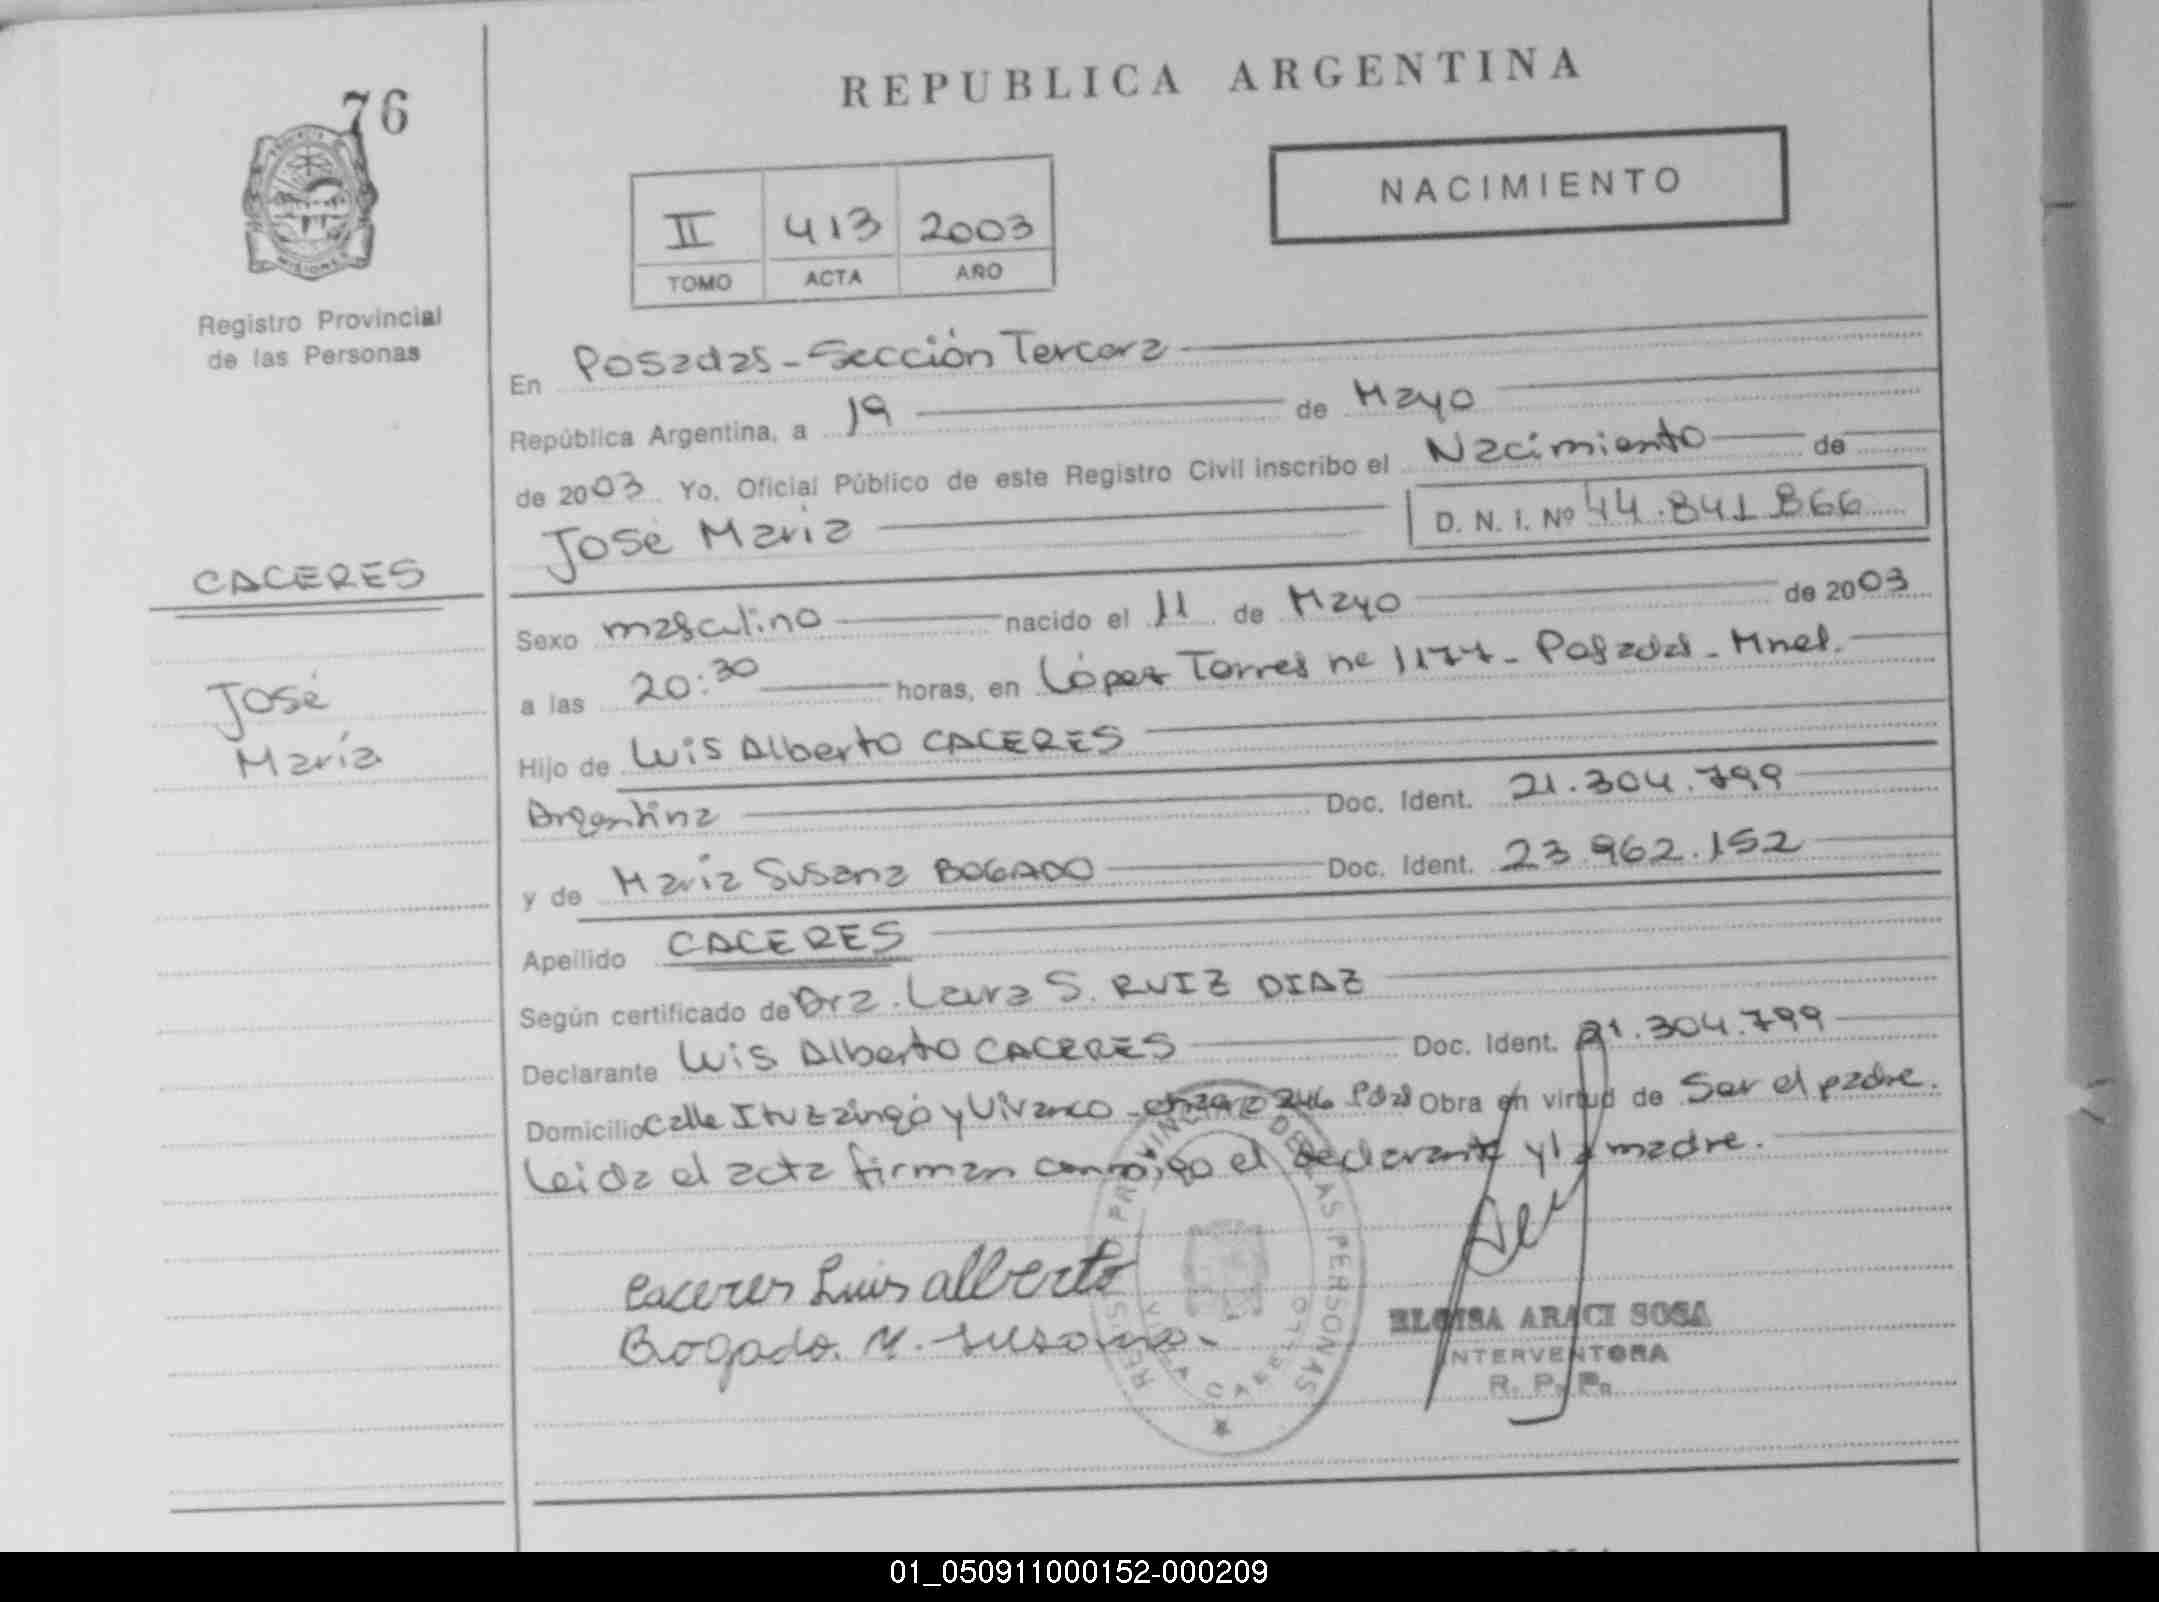 76
REPUBLICA ARGENTINA
NACIMIENTO
II 413 2003
TOMO ACTA AÑO
MISIONES
Registro Provincial
de las Personas
En Posadas - Sección Tercera
República Argentina, a 19 de Mayo
de 2003 Yo, Oficial Público de este Registro Civil inscribo el Nacimiento de
José María D. N. I. Nº 44.841.866
CACERES
José
María
Sexo masculino nacido el 11 de Mayo de 2003
a las 20:30 horas, en López Torres nº 1177 - Posadas - Mnes.
Hijo de Luis Alberto CACERES
Argentina Doc. Ident. 21.304.799
y de María Susana BOGADO Doc. Ident. 23.962.152
Apellido CACERES
Según certificado de Dra. Laura S. RUIZ DIAZ
Declarante Luis Alberto CACERES Doc. Ident. 21.304.799
Domicilio Calle Ituzaingó y Vivanco - chacra 246 Pdas Obra en virtud de Ser el padre.
Leida el acta firman conmigo el declarante y la madre.
Caceres Luis alberto
Bogado. M. Susana.
ELOISA ARACI SOSA
INTERVENTORA
R. P. P.
DE LAS PERSONAS
01_050911000152-000209